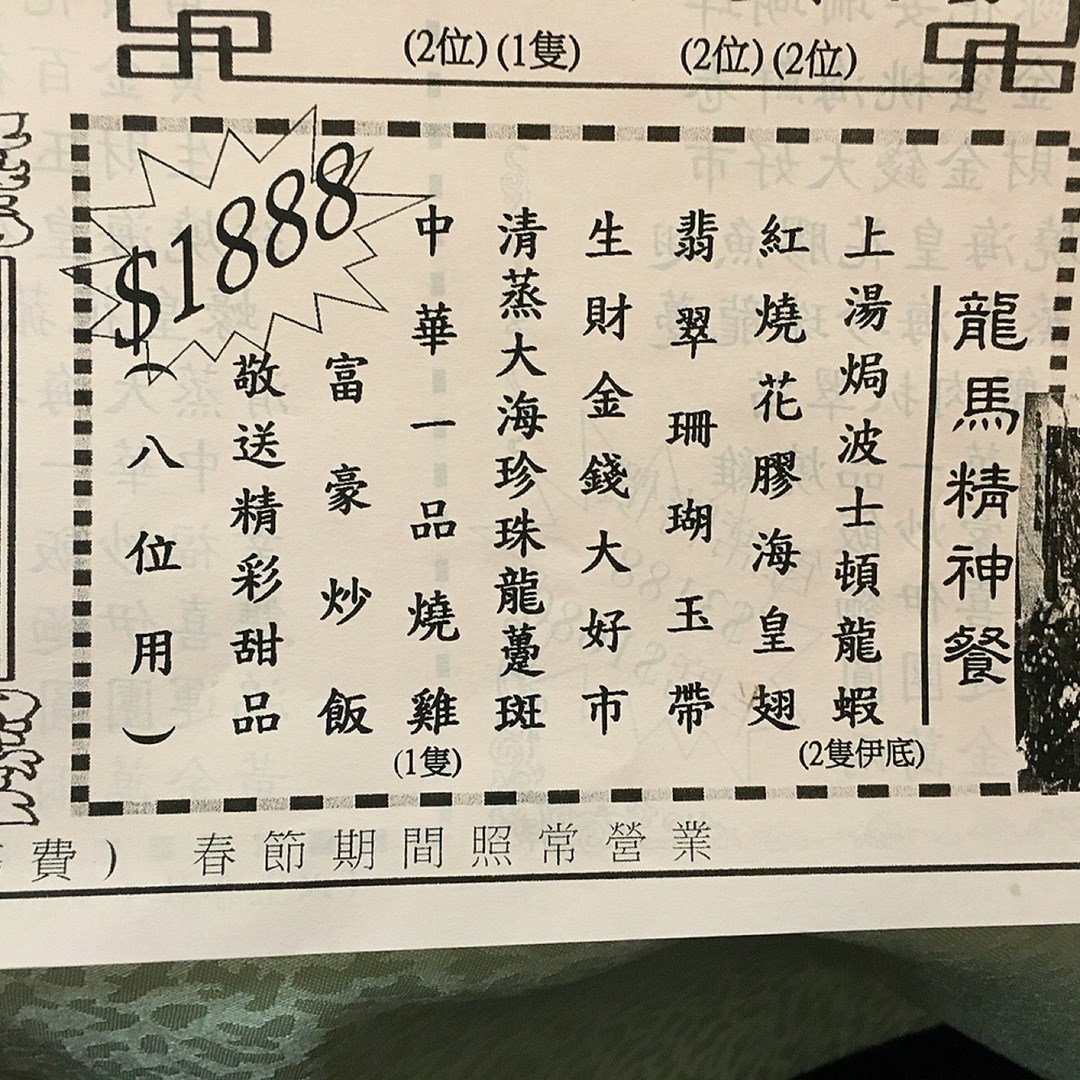 (2位)(1隻) (2位)(2位)
龍馬精神餐
上湯焗波士頓龍蝦
(2隻伊底)
紅燒花膠海皇翅
翡翠珊瑚玉帶
生財金錢大好市
清蒸大海珍珠龍躉斑
中華一品燒雞
(1隻)
富豪炒飯
敬送精彩甜品
(八位用)
$1888
費) 春節期間照常營業